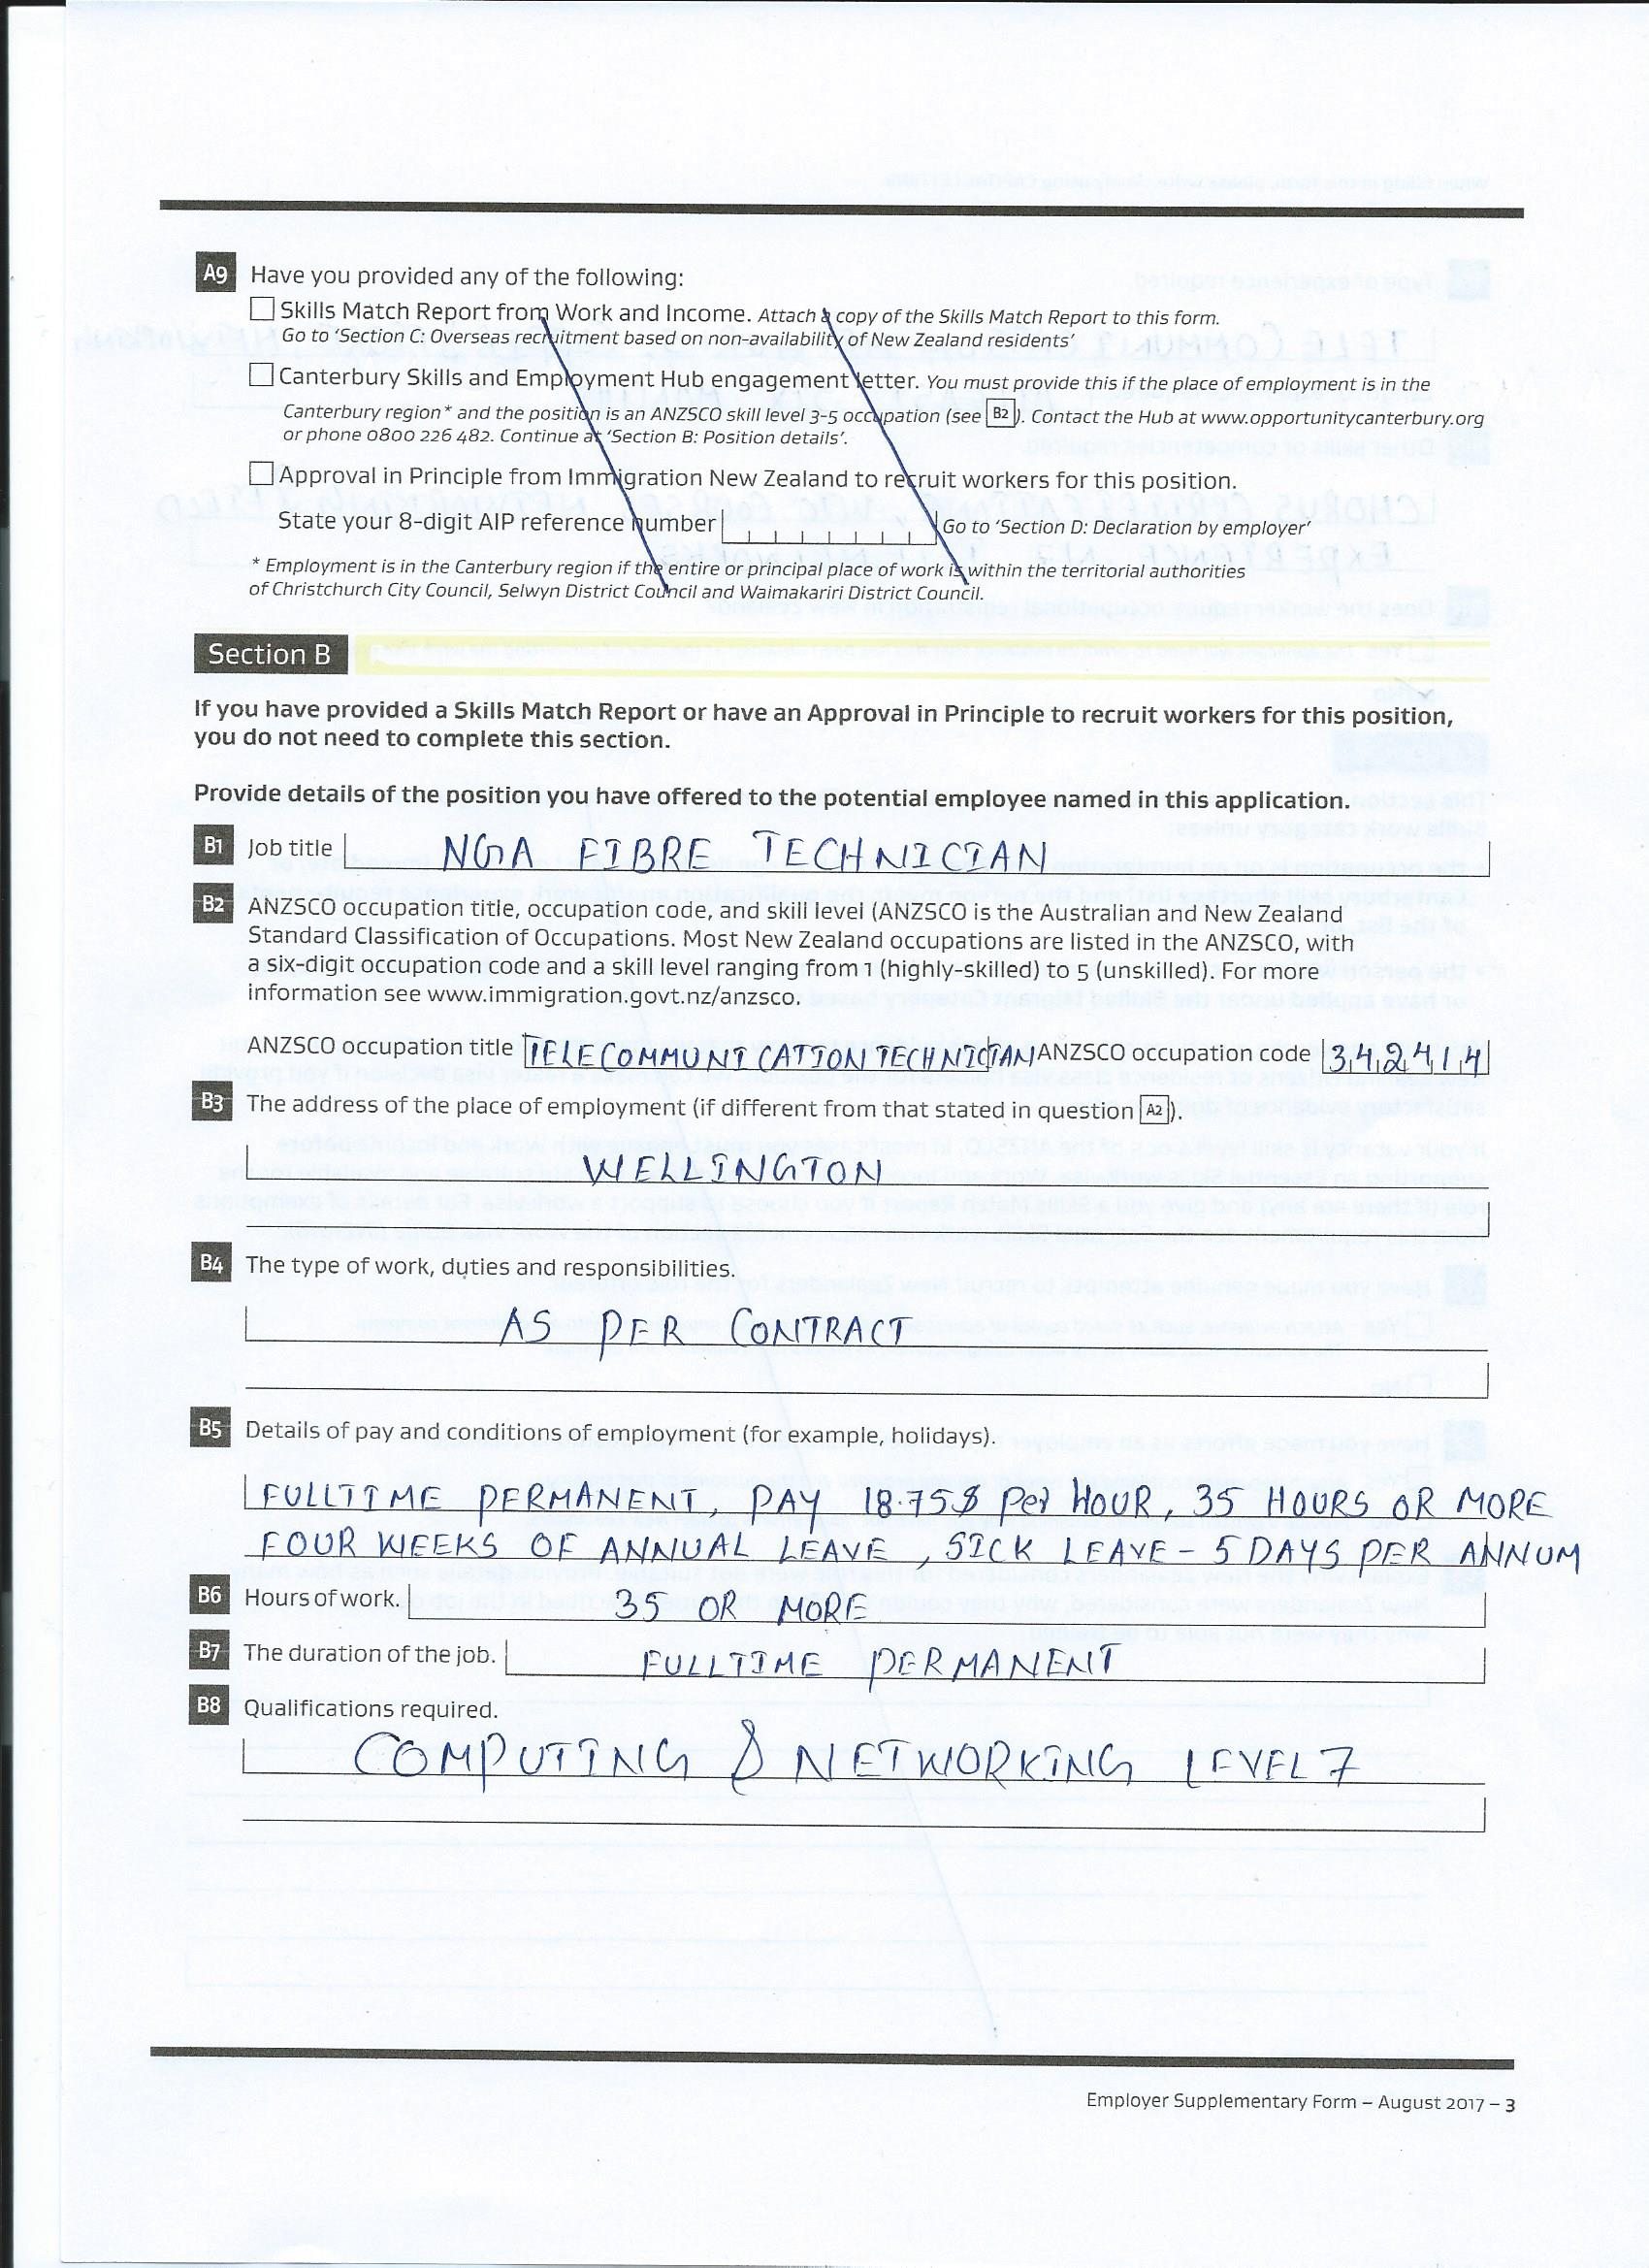 A9 Have you provided any of the following:
Skills Match Report from Work and Income. Attach a copy of the Skills Match Report to this form.
Go to 'Section C: Overseas recruitment based on non-availability of New Zealand residents'
Canterbury Skills and Employment Hub engagement letter. You must provide this if the place of employment is in the
Canterbury region* and the position is an ANZSCO skill level 3-5 occupation (see B2). Contact the Hub at www.opportunitycanterbury.org
or phone 0800 226 482. Continue at 'Section B: Position details'.
Approval in Principle from Immigration New Zealand to recruit workers for this position.
State your 8-digit AIP reference number Go to 'Section D: Declaration by employer'
* Employment is in the Canterbury region if the entire or principal place of work is within the territorial authorities
of Christchurch City Council, Selwyn District Council and Waimakariri District Council.
Section B
If you have provided a Skills Match Report or have an Approval in Principle to recruit workers for this position,
you do not need to complete this section.
Provide details of the position you have offered to the potential employee named in this application.
B1 Job title NGA FIBRE TECHNICIAN
B2 ANZSCO occupation title, occupation code, and skill level (ANZSCO is the Australian and New Zealand
Standard Classification of Occupations. Most New Zealand occupations are listed in the ANZSCO, with
a six-digit occupation code and a skill level ranging from 1 (highly-skilled) to 5 (unskilled). For more
information see www.immigration.govt.nz/anzsco.
ANZSCO occupation title TELECOMMUNICATION TECHNICIAN ANZSCO occupation code 342414
B3 The address of the place of employment (if different from that stated in question A2).
WELLINGTON
B4 The type of work, duties and responsibilities.
AS PER CONTRACT
B5 Details of pay and conditions of employment (for example, holidays).
FULLTIME PERMANENT, PAY 18.75$ Per HOUR, 35 HOURS OR MORE
FOUR WEEKS OF ANNUAL LEAVE, SICK LEAVE - 5 DAYS PER ANNUM
B6 Hours of work. 35 OR MORE
B7 The duration of the job. FULLTIME PERMANENT
B8 Qualifications required.
COMPUTING & NETWORKING LEVEL 7
Employer Supplementary Form – August 2017 – 3